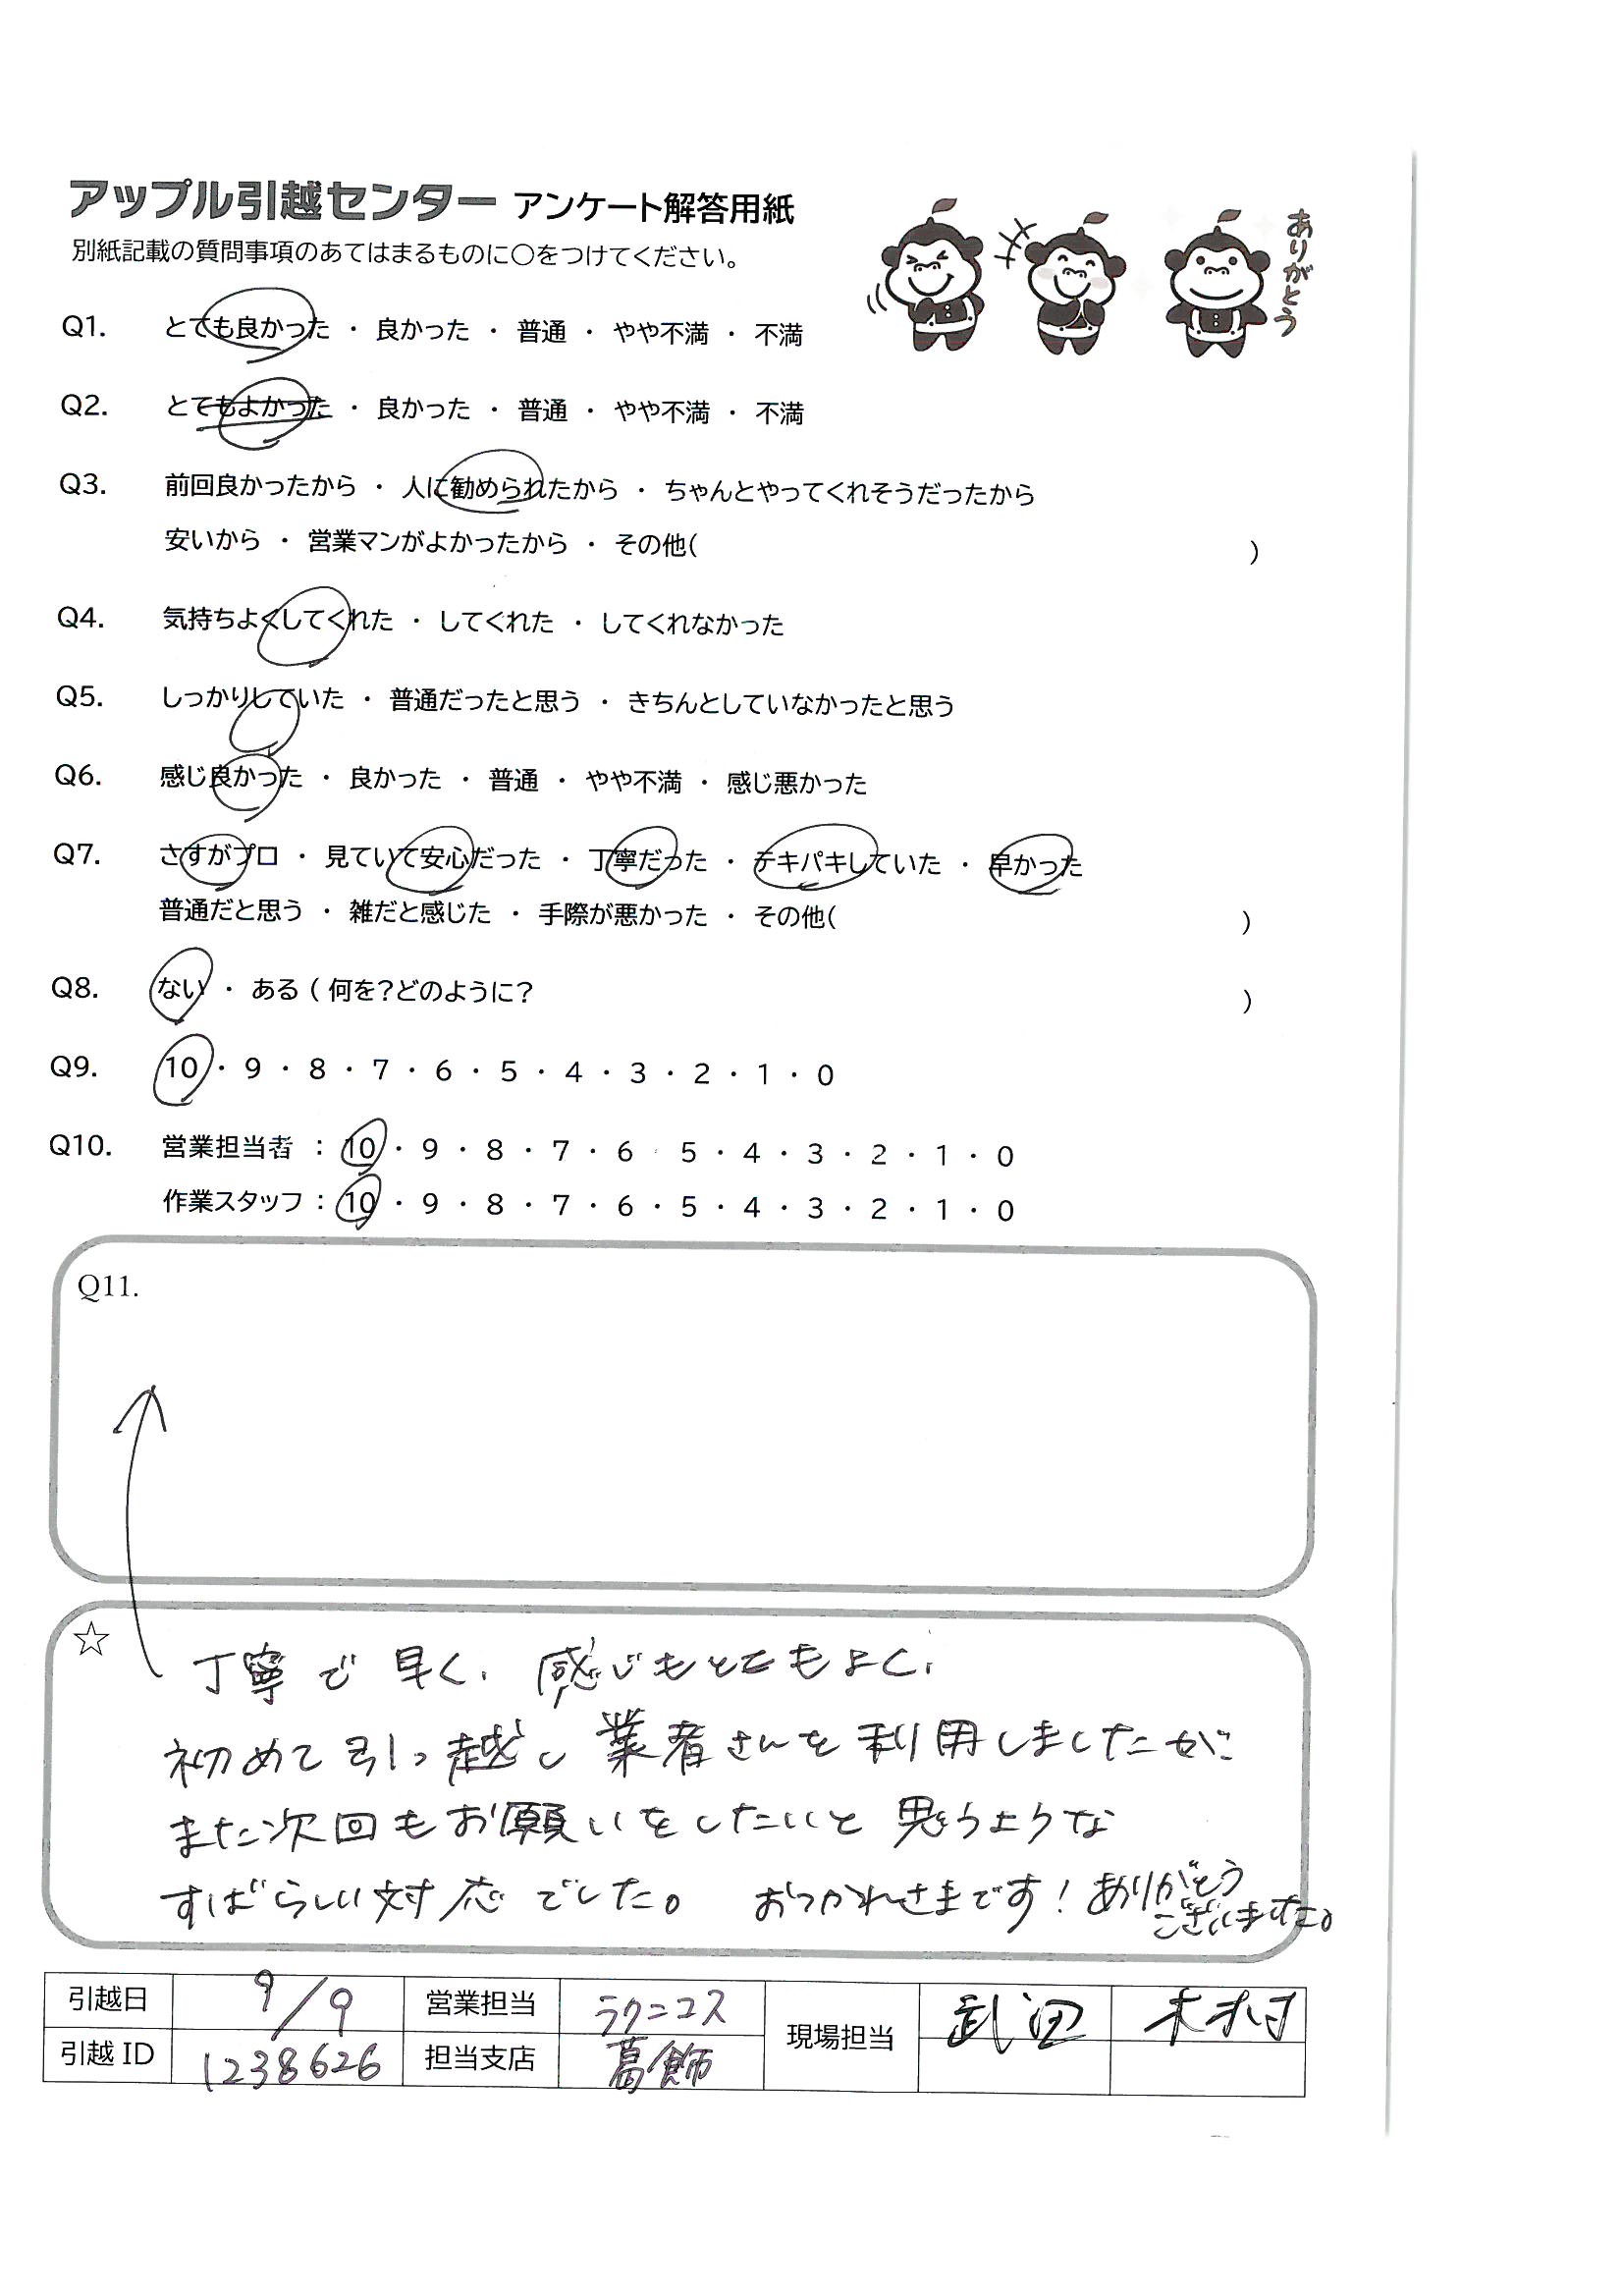 アップル引越センター アンケート解答用紙
別紙記載の質問事項のあてはまるものに○をつけてください。
ありがとう
Q1. とても良かった ・ 良かった ・ 普通 ・ やや不満 ・ 不満
Q2. とてもよかった ・ 良かった ・ 普通 ・ やや不満 ・ 不満
Q3. 前回良かったから ・ 人に勧められたから ・ ちゃんとやってくれそうだったから
安いから ・ 営業マンがよかったから ・ その他( )
Q4. 気持ちよくしてくれた ・ してくれた ・ してくれなかった
Q5. しっかりしていた ・ 普通だったと思う ・ きちんとしていなかったと思う
Q6. 感じ良かった ・ 良かった ・ 普通 ・ やや不満 ・ 感じ悪かった
Q7. さすがプロ ・ 見ていて安心だった ・ 丁寧だった ・ テキパキしていた ・ 早かった
普通だと思う ・ 雑だと感じた ・ 手際が悪かった ・ その他( )
Q8. ない ・ ある ( 何を?どのように? )
Q9. 10 ・ 9 ・ 8 ・ 7 ・ 6 ・ 5 ・ 4 ・ 3 ・ 2 ・ 1 ・ 0
Q10. 営業担当者 : 10 ・ 9 ・ 8 ・ 7 ・ 6 ・ 5 ・ 4 ・ 3 ・ 2 ・ 1 ・ 0
作業スタッフ : 10 ・ 9 ・ 8 ・ 7 ・ 6 ・ 5 ・ 4 ・ 3 ・ 2 ・ 1 ・ 0
Q11.
☆ 丁寧で早く、感じもとてもよく、
初めて引っ越し業者さんを利用しましたが
また次回もお願いをしたいと思うような
すばらしい対応でした。 おつかれさまです！ありがとう
ございました。
引越日 9/9 営業担当 ラクニコス 現場担当 武田 木村
引越 ID 1238626 担当支店 葛飾